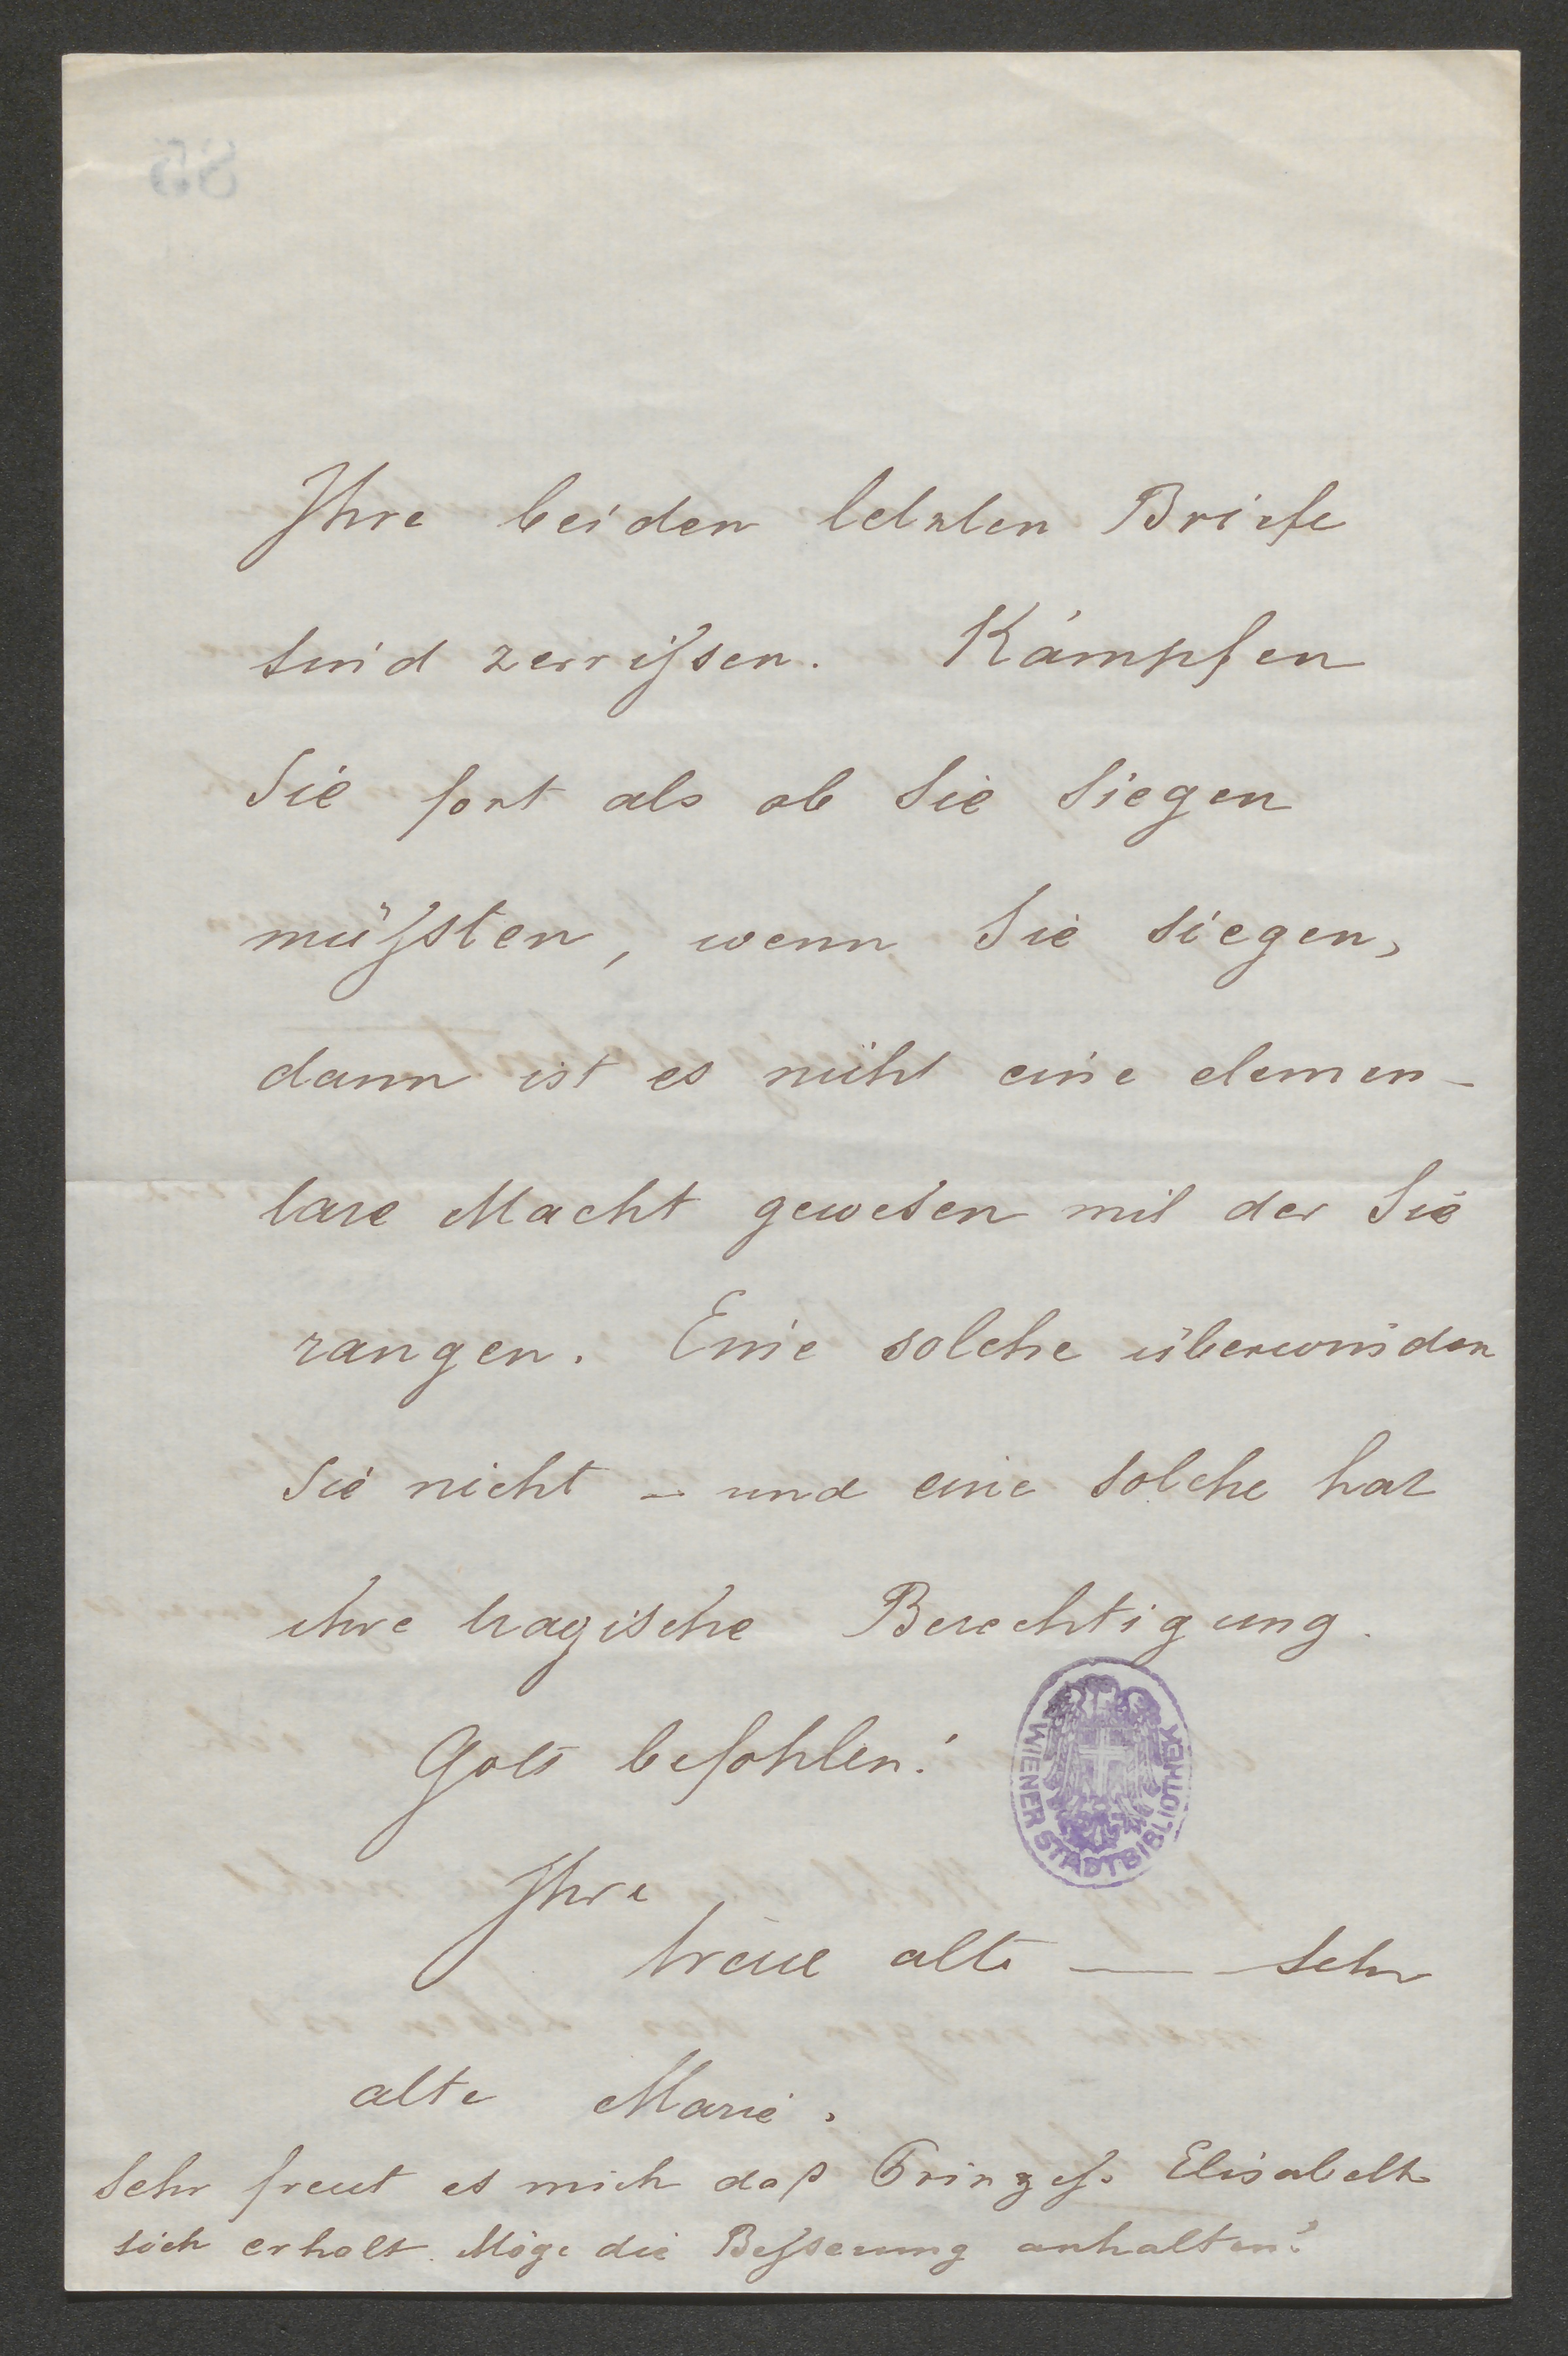 Ihre beiden letzten Briefe
sind zerrißsen. Kämpfen
Sie fort als ob Sie siegen
müßsten, wenn Sie siegen,
dann ist es nicht eine elemen-
tare Macht gewesen mit der Sie
rangen. Eine solche überwinden
Sie nicht – und eine solche hat
ihre tragische Berechtigung.
Gott befohlen!
WIENER STADTBIBLIOTHEK
Ihre
treue alte — sehr
alte Marie.
Sehr freut es mich daß Prinzeß Elisabeth
sich erholt. Möge die Beßserung anhalten!